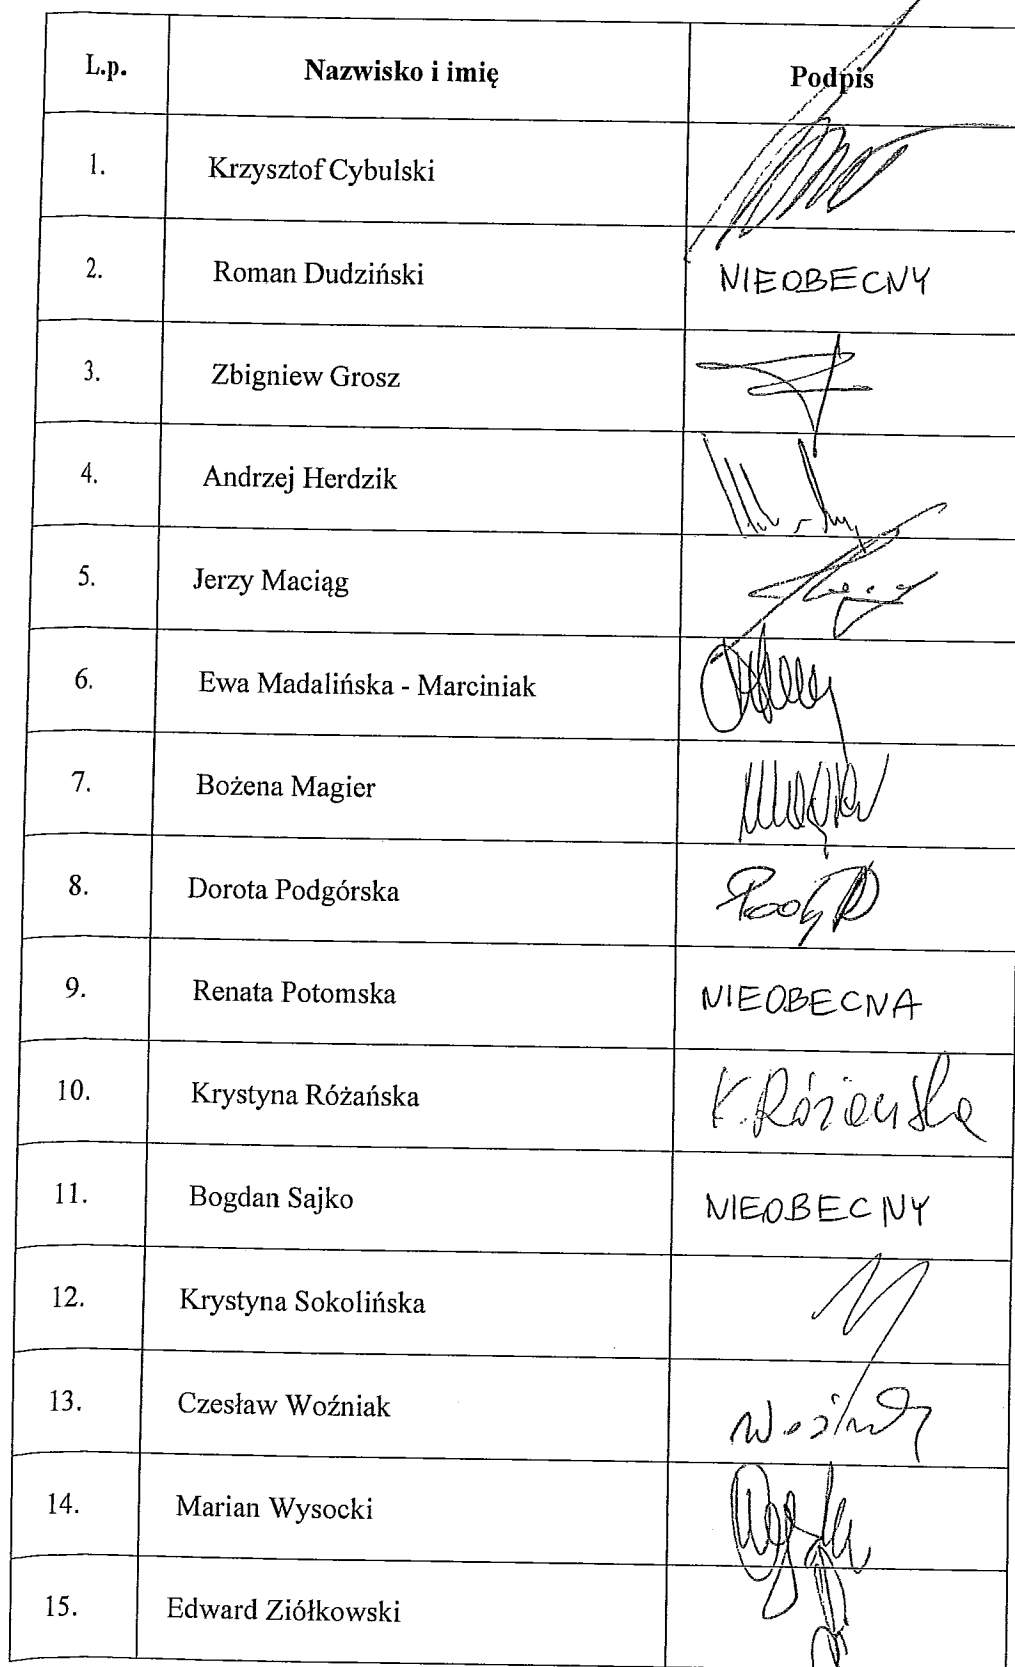 L.p. Nazwisko i imię Podpis
1. Krzysztof Cybulski
2. Roman Dudziński NIEOBECNY
3. Zbigniew Grosz
4. Andrzej Herdzik
5. Jerzy Maciąg
6. Ewa Madalińska - Marciniak
7. Bożena Magier
8. Dorota Podgórska
9. Renata Potomska NIEOBECNA
10. Krystyna Różańska K. Różańska
11. Bogdan Sajko NIEOBECNY
12. Krystyna Sokolińska
13. Czesław Woźniak
14. Marian Wysocki
15. Edward Ziółkowski